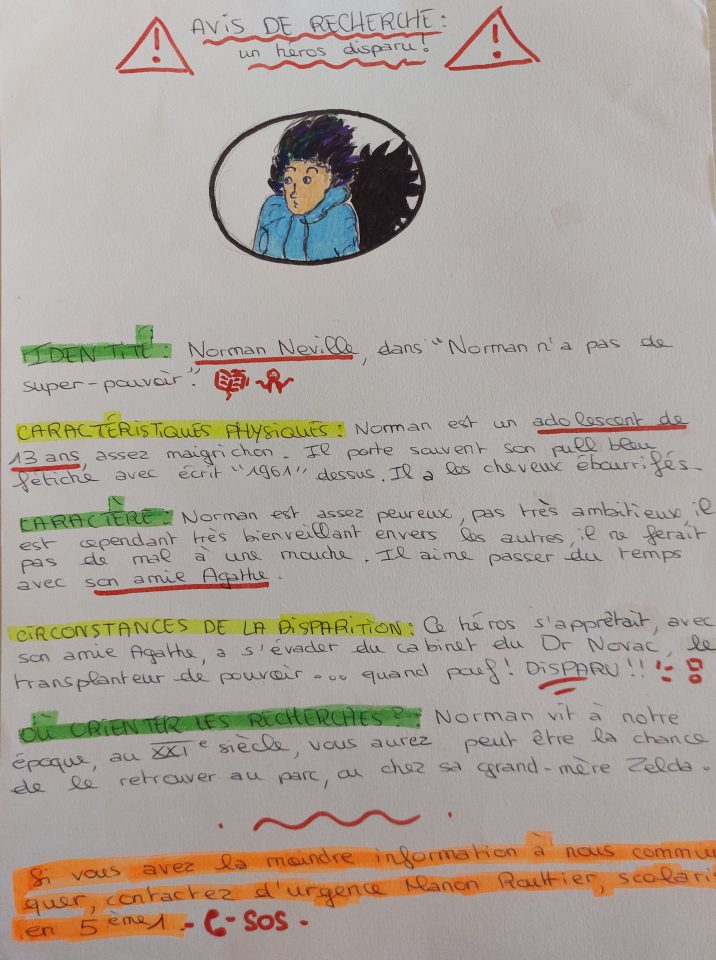 AVIS DE RECHERCHE :
un héros disparu !
IDENTITÉ : Norman Neville, dans "Norman n'a pas de
super-pouvoir".
CARACTÉRISTIQUES PHYSIQUES : Norman est un adolescent de
13 ans, assez maigrichon. Il porte souvent son pull bleu
fétiche avec écrit "1961" dessus. Il a les cheveux ébourrifés.
CARACTÈRE : Norman est assez peureux, pas très ambitieux, il
est cependant très bienveillant envers les autres, il ne ferait
pas de mal à une mouche. Il aime passer du temps
avec son amie Agathe.
CIRCONSTANCES DE LA DISPARITION : Ce héros s'apprêtait, avec
son amie Agathe, a s'évader du cabinet du Dr Novac, le
transplanteur de pouvoir .... quand pouf ! DISPARU !!
OÙ ORIENTER LES RECHERCHES ? : Norman vit à notre
époque, au XXIe siècle, vous aurez peut être la chance
de le retrouver au parc, ou chez sa grand-mère Zelda.
Si vous avez la moindre information à nous commu
quer, contactez d'urgence Manon Routtier, scolari
en 5ème1 - SOS -